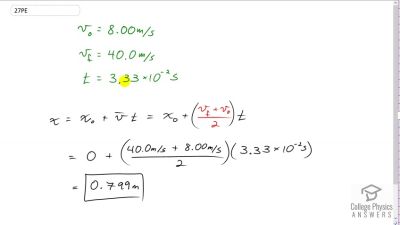 27PE
v₀ = 8.00 m/s
v_t = 40.0 m/s
t = 3.33 × 10⁻² s
x = x₀ + v̄ t = x₀ + (v_t + v₀ / 2) t
= 0 + (40.0 m/s + 8.00 m/s / 2)(3.33 × 10⁻² s)
= 0.799 m
College Physics
ANSWERS.com